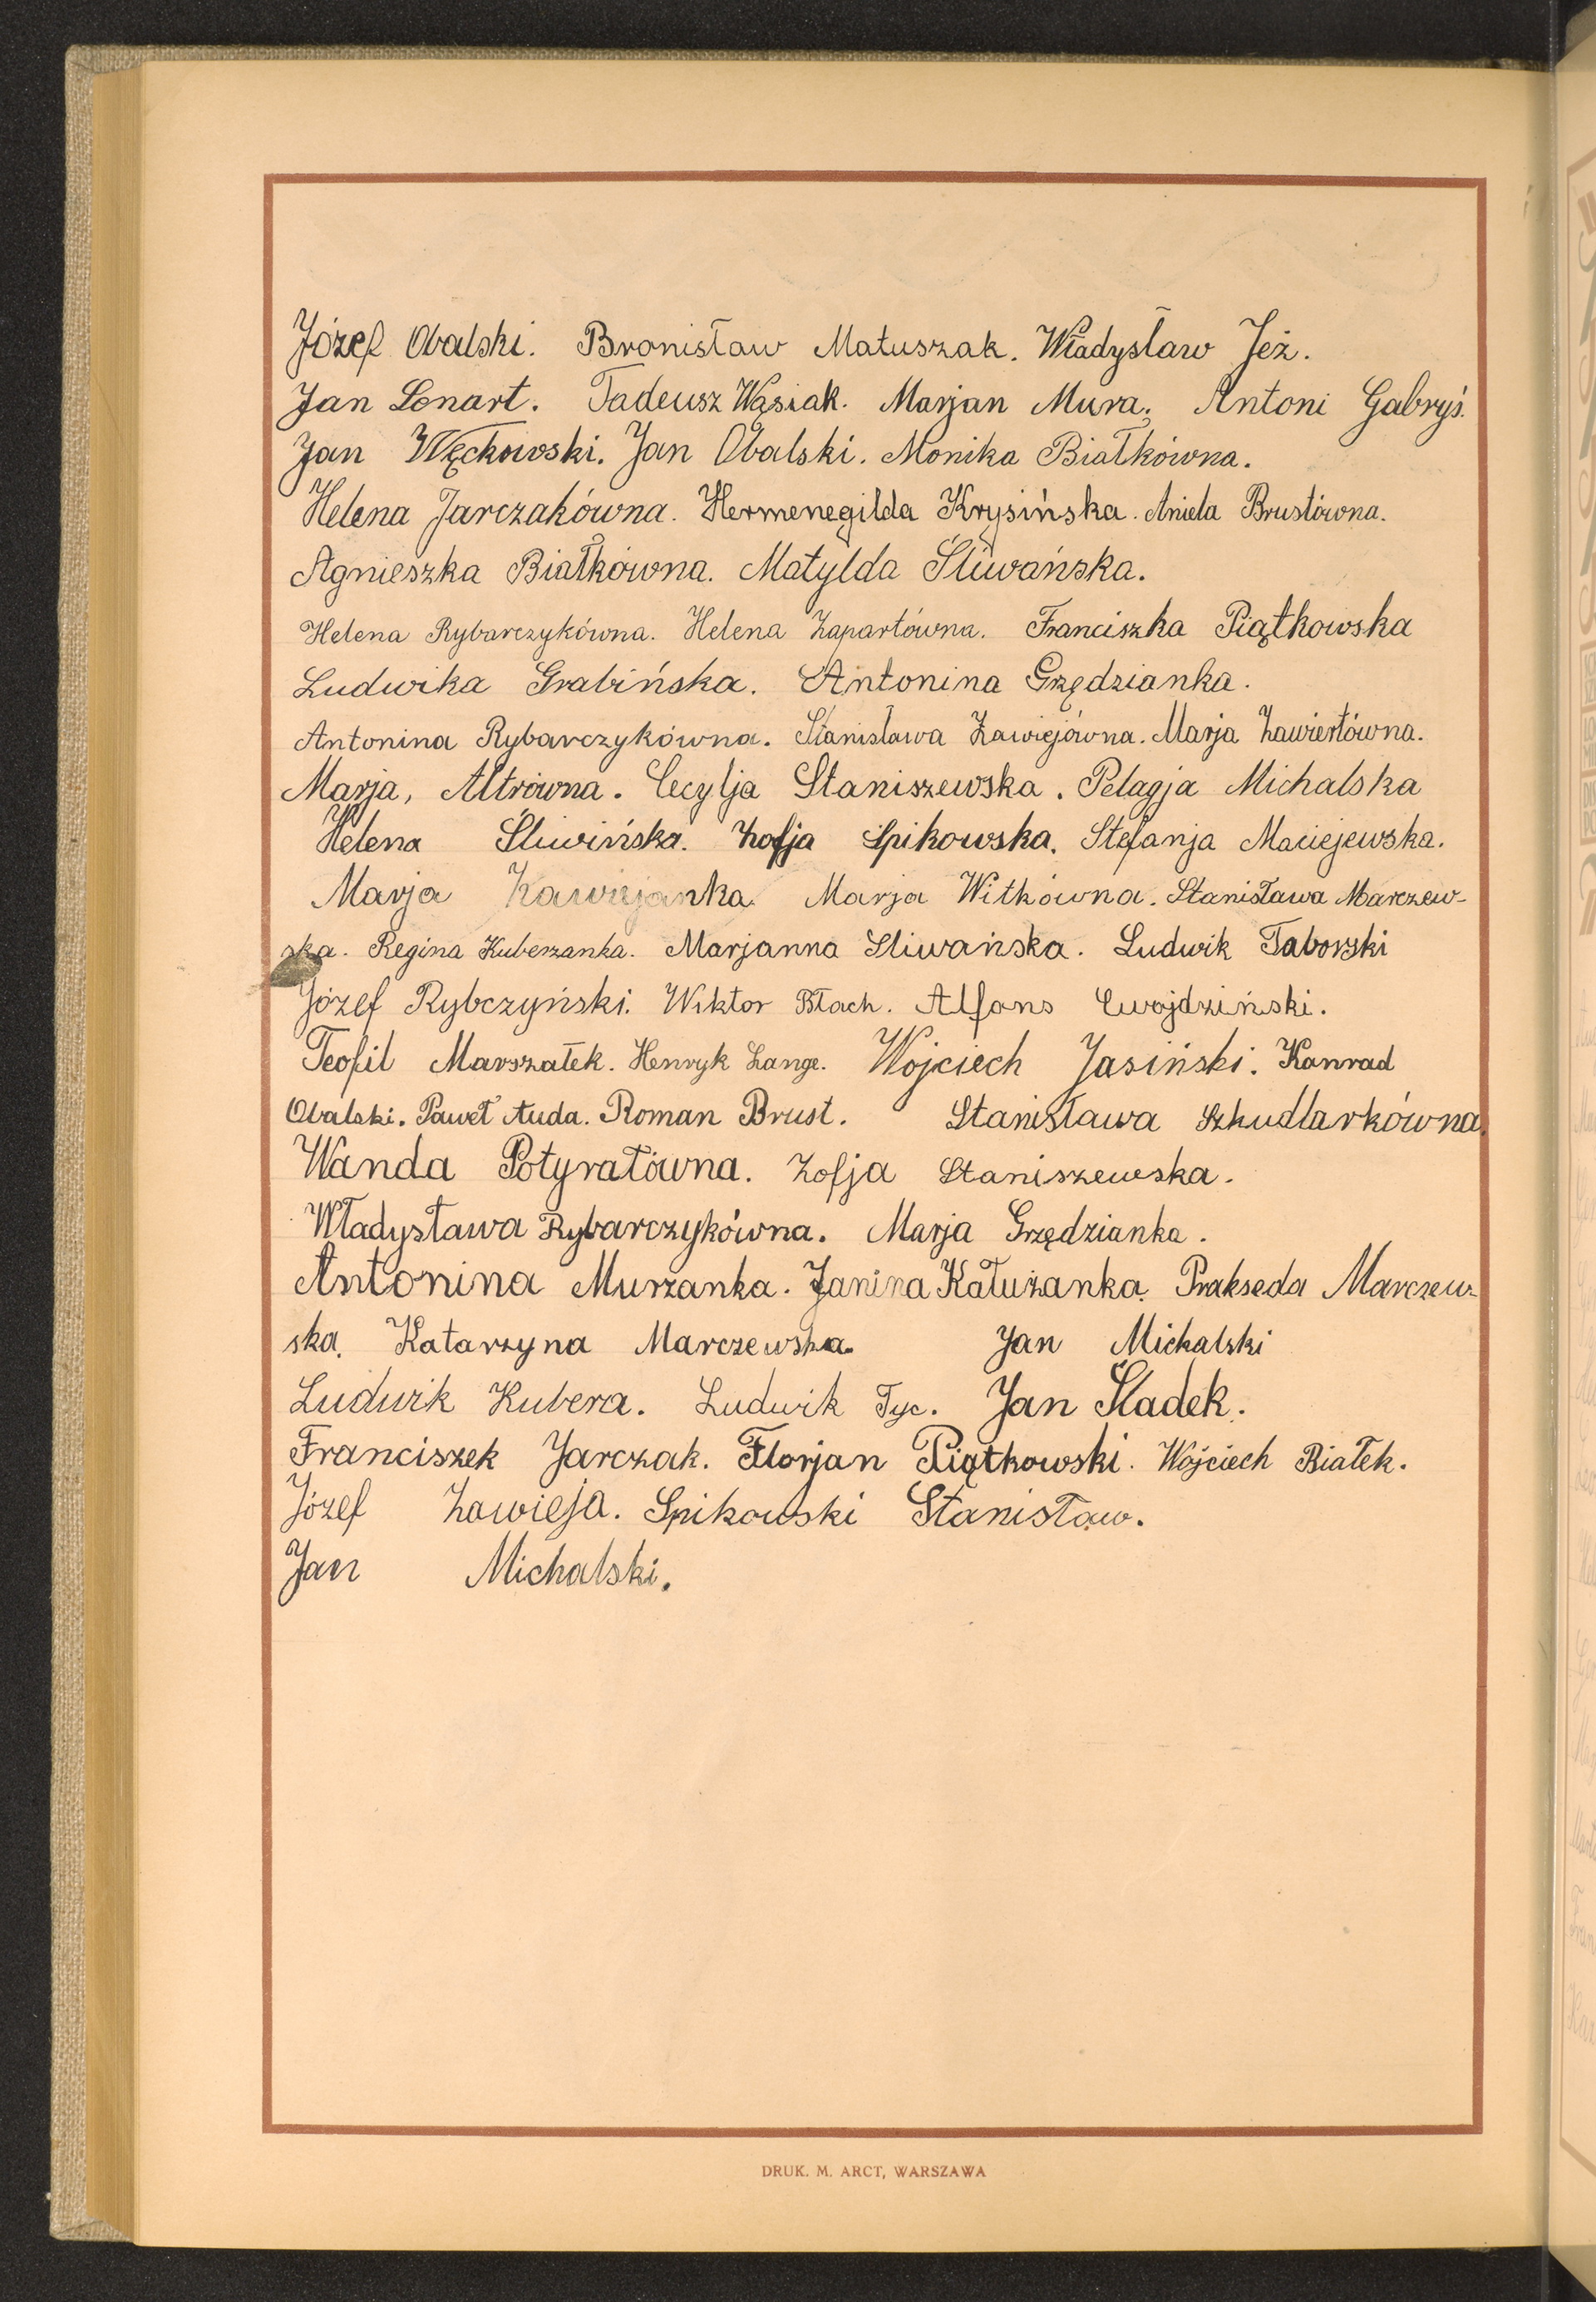 Józef Obalski. Bronisław Matuszak. Władysław Jeż.
Jan Lenart. Tadeusz Wąsiak. Marjan Mura. Antoni Gabryś.
Jan Węckowski. Jan Obalski. Monika Białkówna.
Helena Jarczakówna. Hermenegilda Krysińska. Aniela Brustówna.
Agnieszka Białkówna. Matylda Śliwańska.
Helena Rybarczykówna. Helena Zapartówna. Franciszka Piątkowska
Ludwika Grabińska. Antonina Grzędzianka.
Antonina Rybarczykówna. Stanisława Zawiejówna. Marja Zawiertówna.
Marja, Altrówna. Cecylja Staniszewska. Pelagja Michalska
Helena Śliwińska. Zofja Spikowska. Stefanja Maciejewska.
Marja Zawiejanka. Marja Witkówna. Stanisława Marczew-
ska. Regina Kuberzanka. Marjanna Śliwańska. Ludwik Taborski
Józef Rybczyński. Wiktor Błach. Alfons Cwojdziński.
Teofil Marszałek. Henryk Lange. Wojciech Jasiński. Konrad
Obalski. Paweł Auda. Roman Brust. Stanisława Szkudlarkówna.
Wanda Potyrałówna. Zofja Staniszewska.
Władysława Rybarczykówna. Marja Grzędzianka.
Antonina Murzanka. Janina Kałużanka. Prakseda Marczew-
ska. Katarzyna Marczewska. Jan Michalski
Ludwik Kubera. Ludwik Tyc. Jan Śladek.
Franciszek Jarczak. Florjan Piątkowski. Wojciech Białek.
Józef Zawieja. Spikowski Stanisław.
Jan Michalski.
DRUK. M. ARCT, WARSZAWA